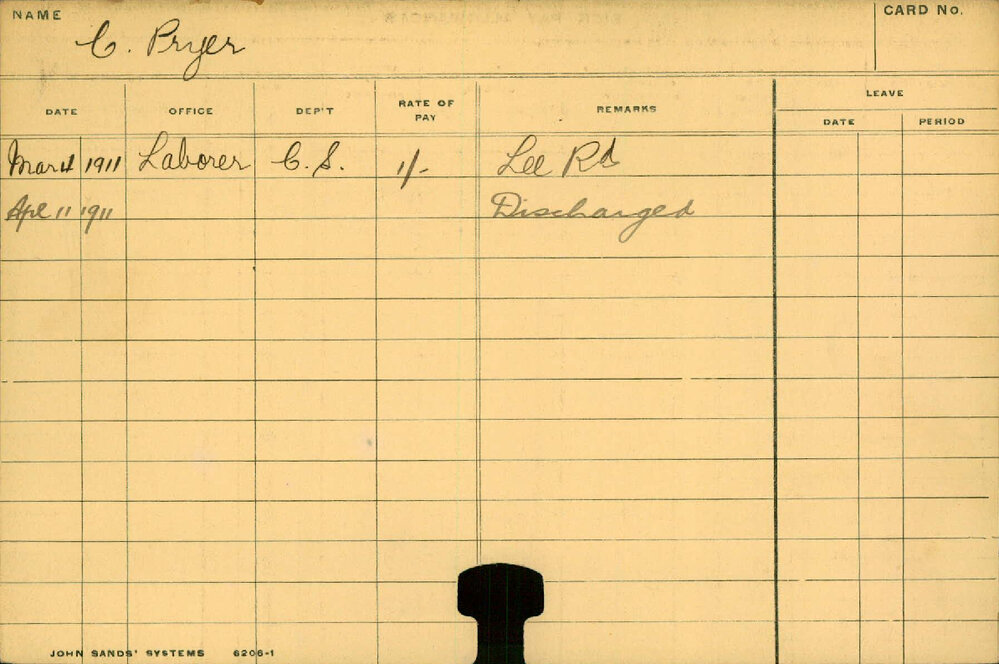 NAME
CARD No.
C. Pryer
DATE OFFICE DEP'T RATE OF PAY REMARKS LEAVE
DATE PERIOD
Mar 4 1911 Laborer C. S. 1/- Lee Rd
Apl 11 1911 Discharged
JOHN SANDS' SYSTEMS 6206-1